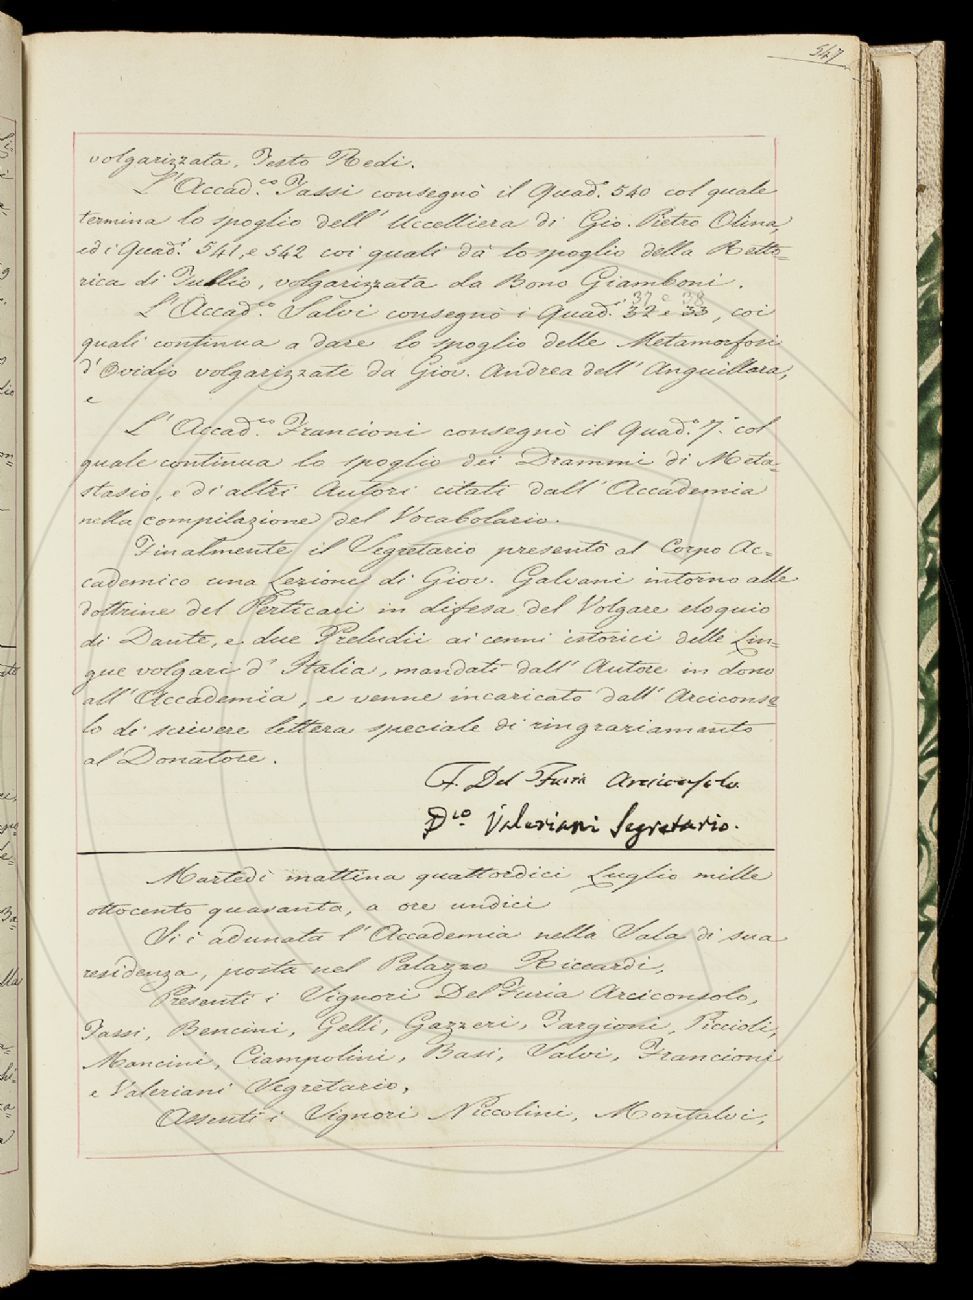 547
volgarizzata, Testo Redi.
L'Accad.co Tassi consegnò il Quad.o 540 col quale
termina lo spoglio dell'Uccelliera di Gio. Pietro Olina,
ed i Quad.i 541, e 542 coi quali dà lo spoglio della Retto=
rica di Tullio, volgarizzata da Bono Giamboni.
37 e 38
L'Accad.co Salvi consegnò i Quad.i 32 e 33, coi
quali continua a dare lo spoglio delle Metamorfosi
d'Ovidio volgarizzate da Giov. Andrea dell'Anguillara,
e
L'Accad.co Francioni consegnò il Quad.o 7.o col
quale continua lo spoglio dei Drammi di Meta=
stasio, e di altri Autori citati dall'Accademia
nella compilazione del Vocabolario.
Finalmente il Segretario presentò al Corpo Ac=
cademico una Lezione di Giov. Galvani intorno alle
dottrine del Perticari in difesa del Volgare eloquio
di Dante, e due Preludii ai cenni istorici delle Lin=
gue volgari d'Italia, mandati dall'Autore in dono
all'Accademia, e venne incaricato dall'Arciconso
lo di scrivere lettera speciale di ringraziamento
al Donatore.
F. Del Furia Arciconsolo
D.co Valeriani Segretario.
Martedì mattina quattordici Luglio mille
ottocento quaranta, a ore undici
Si è adunata l'Accademia nella Sala di sua
residenza, posta nel Palazzo Riccardi,
Presenti i Signori Del Furia Arciconsolo,
Tassi, Bencini, Gelli, Gazzeri, Targioni, Piccioli,
Mancini, Ciampolini, Basi, Salvi, Francioni
e Valeriani Segretario,
Assenti i Signori Niccolini, Montalvi,